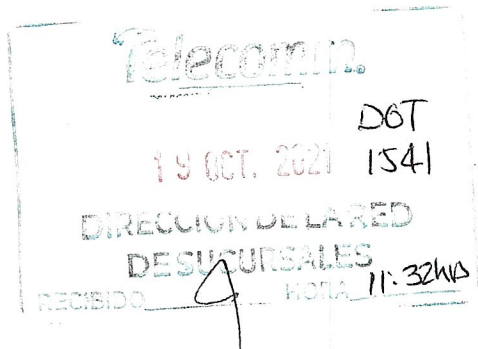 Telecomm.
DGT
19 OCT. 2021 1541
DIRECCION DE LA RED
DE SUCURSALES
RECIBIDO HORA 11:32hrs